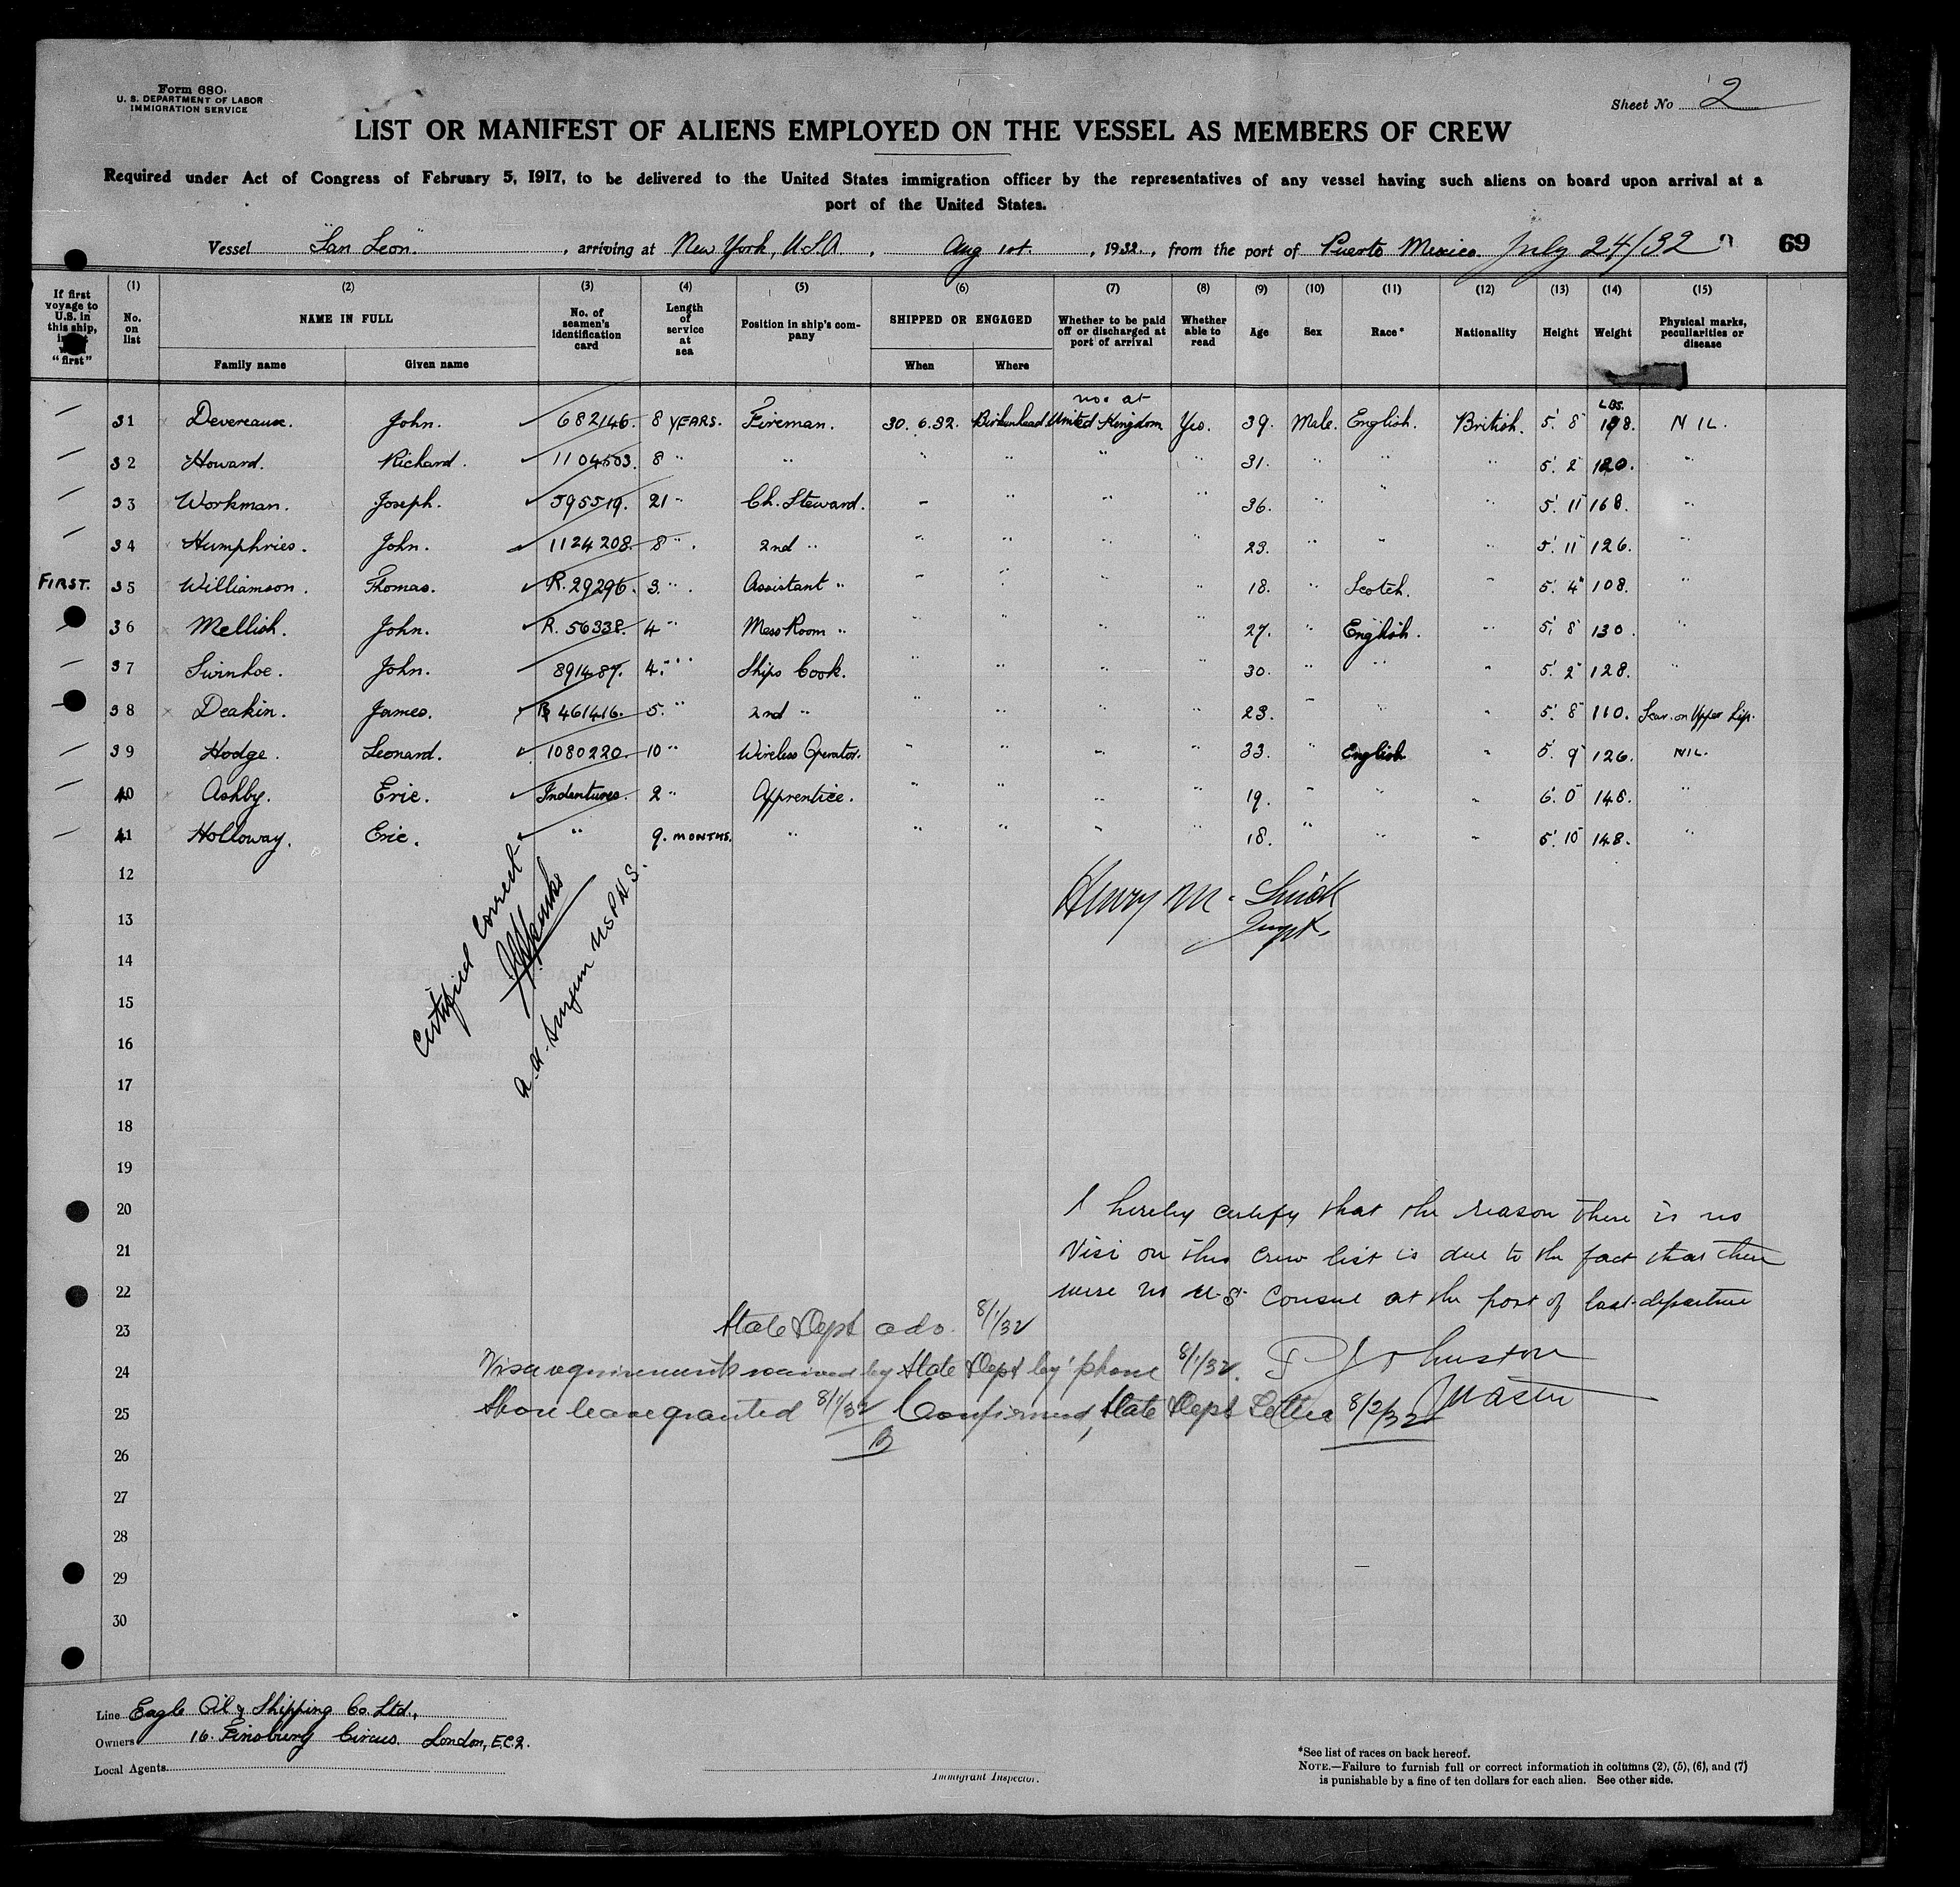 Form 680
U. S. DEPARTMENT OF LABOR
IMMIGRATION SERVICE
Sheet No 2
LIST OR MANIFEST OF ALIENS EMPLOYED ON THE VESSEL AS MEMBERS OF CREW
Required under Act of Congress of February 5, 1917, to be delivered to the United States immigration officer by the representatives of any vessel having such aliens on board upon arrival at a
port of the United States.
Vessel "San Leon", arriving at New York, U.S.A., Aug 1st, 1932, from the port of Puerto Mexico. July 24/32 69
If first voyage to U.S. in this ship, "first"
(1) No. on list
(2) NAME IN FULL Family name Given name
(3) No. of seamen's identification card
(4) Length of service at sea
(5) Position in ship's company
(6) SHIPPED OR ENGAGED When Where
(7) Whether to be paid off or discharged at port of arrival
(8) Whether able to read
(9) Age
(10) Sex
(11) Race*
(12) Nationality
(13) Height
(14) Weight
(15) Physical marks, peculiarities or disease
31 Devereaux. John. 682146. 8 YEARS. Fireman. 30.6.32. Birkenhead United Kingdom Yes. 39. Male. English. British. 5' 8" LBS. NIL.
32 Howard. Richard. 1104503. 8 " " " " " " 31. " " " 5' 2" 120. "
33 Workman. Joseph. 595519. 21 " Ch. Steward. " " " " 36. " " " 5' 11" 168. "
34 Humphries. John. 1124208. 8 " 2nd " " " " " 23. " " " 5' 11" 126. "
FIRST. 35 Williamson. Thomas. R. 29296. 3 " Assistant " " " " " 18. " Scotch. " 5' 4" 108. "
36 Mellish. John. R. 56338. 4 " Mess Room " " " " " 27. " English. " 5' 8" 130. "
37 Swinhoe. John. 891487. 4 " Ships Cook. " " " " 30. " " " 5' 2" 128. "
38 Deakin. James. 461416. 5 " 2nd " " " " " 23. " " " 5' 8" 110. Scar on Upper Lip.
39 Hodge. Leonard. 1080220. 10 " Wireless Operator. " " " " 33. " English " 5' 9" 126. NIL.
40 Ashby. Eric. Indentures. 2 " Apprentice. " " " " 19. " " " 6' 0" 148. "
41 Holloway. Eric. " 9. MONTHS. " " " " " 18. " " " 5' 10" 148. "
12
13
14
15
16
17
18
19
20
21
22
23
24
25
26
27
28
29
30
Certified Correct
A. A. Surgeon USPHS.
Henry M.
Inspt.
I hereby certify that the reason there is no
Visi on this crew list is due to the fact that there
were no U.S. Consul at the port of last departure
Johnston
Master
State Dept adv. 8/1/32
Visa requirements waived by State Dept by 'phone 8/1/32.
Shore leave granted 8/1/32 Confirmed, State Dept Letter 8/2/32
Line Eagle Oil & Shipping Co. Ltd.,
Owners 16. Finsbury Circus. London, E.C.2.
Local Agents
Immigrant Inspector.
*See list of races on back hereof.
NOTE.—Failure to furnish full or correct information in columns (2), (5), (6), and (7)
is punishable by a fine of ten dollars for each alien. See other side.